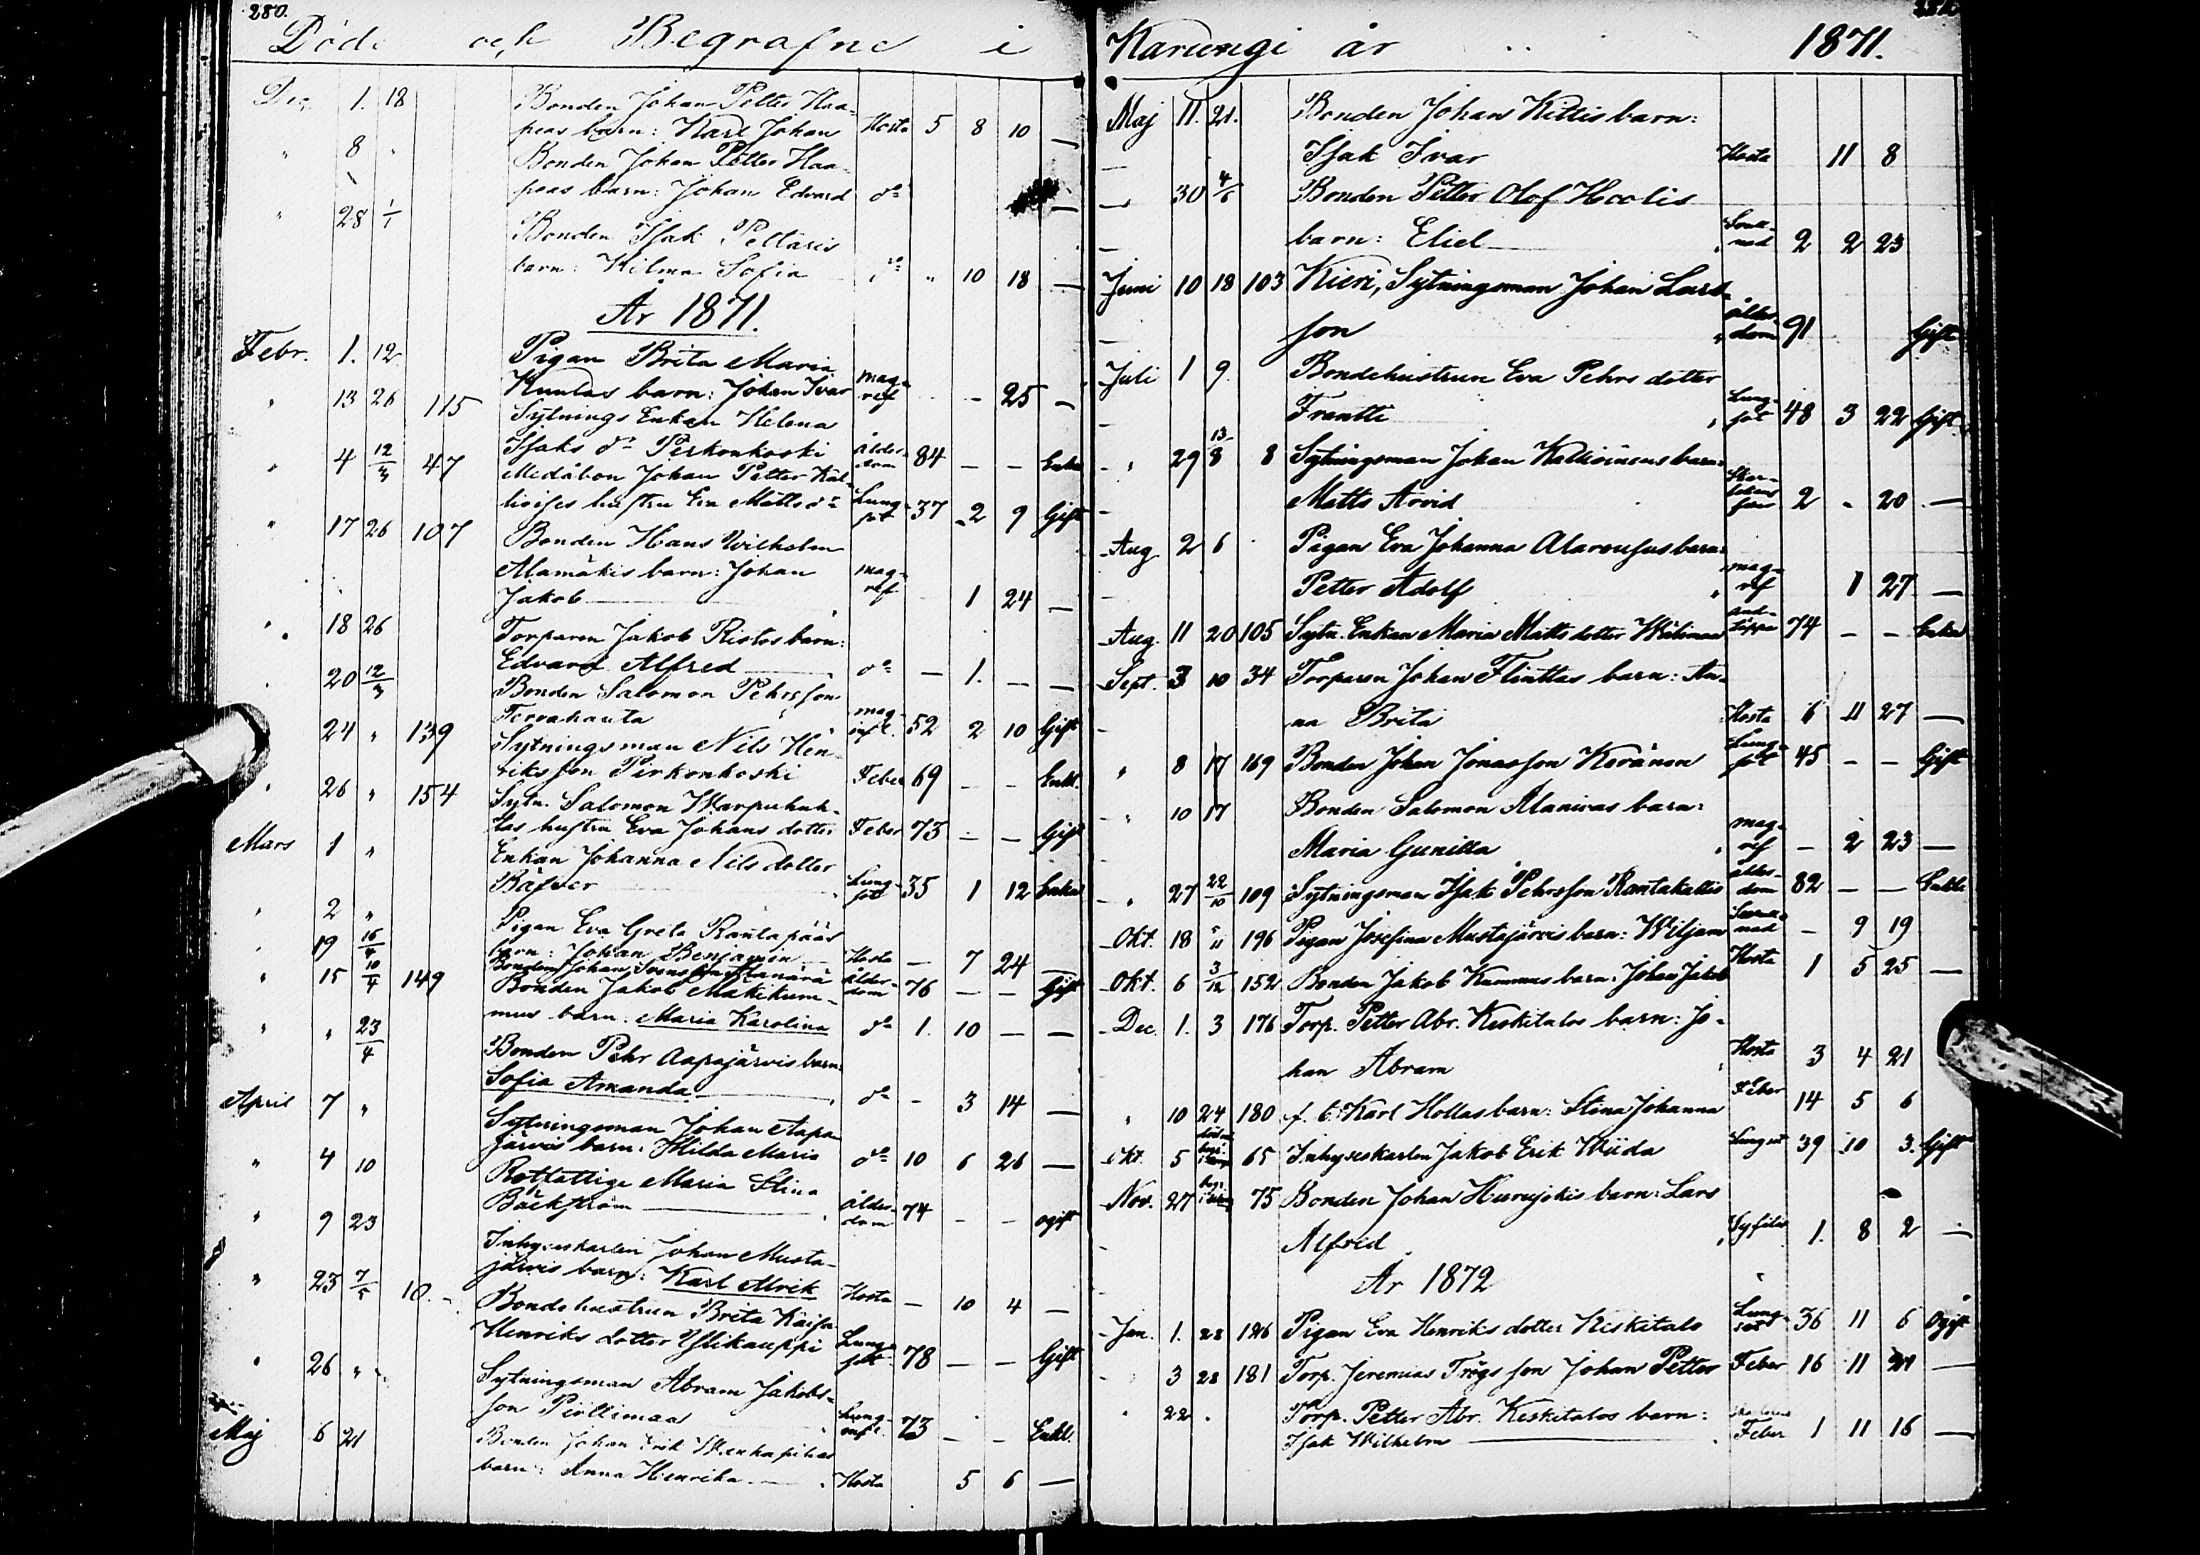 280.
Döde och Begrafne i
Dec. 1. 18 Bonden Johan Petter Haa-
peas barn: Karl Johan Hosta 5 8 10 —
" 8 " Bonden Johan Petter Haa-
peas barn: Johan Edvard do —
" 28 1/1 Bonden Isak Pettäris
barn: Hilma Sofia do " 10 18 —
År 1871.
Febr. 1. 12 Pigan Brita Maria
Kuulas barn: Johan Ivar mag-ref - 25 —
" 13 26 115 Sytnings Enkan Helena
Isaks dr Perkonkoski ålder-dom 84 — — Enka
" 4 12/3 47 Medåbon Johan Petter
hustru Eva Matts dr Lung-sot 37 2 9 Gift
" 17 26 107 Bonden Hans Wilhelm
Alamäkis barn: Johan
Jakob mag-ref 1 24 —
" 18 26 Torparen Jakob Ristos barn:
Edvard Alfred do — 1. — —
" 20 12/3 Bonden Salomon Pehrsson
Tervahauta mag-infl. 52 2 10 Gift
24 " 139 Sytningsman Nils Hen-
riksson Pirkonkoski Feber 69 — — Enkl.
" 26 " 154 Sytn. Salomon Karpuhuh-
tas hustru Eva Johans dotter Feber 73 — — Gift
Mars 1 " Enkan Johanna Nils dotter
Lung-sot 35 1 12 Enka
" 2 " Pigan Eva Greta Rautapääs
barn: Johan Benjamin Hosta — 7 24 —
" 19 16/4 Bonden Johan ålder-dom 76 — — Gift
" 15 10/4 149 Bonden Jakob Mäkikum-
mus barn: Maria Karolina do 1. 10 — —
" " 23/4 Bonden Pehr Aapajärvis barn:
Sofia Amanda do - 3 14 —
April 7 " Sytningsman Johan Aapa-
järvis barn: Hilda Maria do 10 6 26 —
" 4 10 Rotfattige Maria Stina
Bäckström ålder-dom 74 - - ogift
" 9 23 Inhyseskarlen Johan Musta-
järvis barn: Karl Alrik Hosta — 10 4 —
" 23 7/5 10 Bondehustrun Brita Kaisa
Henriks dotter Ylikauppi Lung-sot 78 — — Gift
" 26 " Sytningsman Abram Jakobs-
son Lung-infl. 73 — — Enkl.
Maj 6 21 Bonden Johan Erik
barn: Anna Henrika Hosta 5 6 —
Karungi år 1871.
Maj 11. 21. Bonden Johan Kittis barn:
Isak Ivar Hosta 11 8
30 4/6 Bonden Petter Olof Hoolis
barn: Eliel 2 2 23
Juni 10 18 103 Kieri, Sytningsman Johan Lars-
son ålder-dom 91 Gift
Juli 1 9. Bondehustrun Eva Pehrs dotter
Frantti Lung-sot 48 3 22 Gift
" 29 13/8 8 Sytningsman Johan Kallioinens barn:
Matts Arvid 2 - 20 —
Aug 2 6 Pigan Eva Johanna Alarousus barn:
Petter Adolf mag-ref 1 27 —
Aug 11 20 105 Sytn. Enkan Maria Matts dotter 74 — — Enka
Sept. 3 10 34 Torparen Johan Flinttas barn: An-
na Brita Hosta 6 11 27 —
" 8 17 169 Bonden Johan Jonasson Keränen Lung-sot 45 — — Gift
" 10 17 Bonden Salomon Alanivas barn:
Maria Gunilla mag-ref — 2 23 —
" 27 22/10 109 Sytningsman Isak Pehrsson Rantakallio ålder-dom 82 — — Enkl.
Okt. 18 5/11 196 Pigan Josefina Mustajärvis barn: Wiljam — 9 19
Okt. 6 3/12 152 Bonden Jakob Kummus barn: Johan Jakob Hosta 1 5 25 —
Dec. 1. 3 176 Torp. Petter Abr. Keskitalos barn: Jo-
han Abram Hosta 3 4 21
" 10 24 180 f. b. Karl Hollas barn: Stina Johanna Feber 14 5 6
Okt. 5 65 Inhyseskarlen Jakob Erik Wiida Lungsot 39 10 3. Gift
Nov. 27 75 Bonden Johan Hurujokis barn: Lars
Alfred Syfilis 1. 8 2 —
År 1872
Jan. 1. 28 Pigan Eva Henriks dotter Keskitalo Lung-sot 36 11 6 Ogift
3 28 181 Torp. Jeremias Trögs son Johan Petter Feber 16 11 —
" 22 " Torp. Petter Abr. Keskitalos barn:
Isak Wilhelm Feber 1 11 16 —